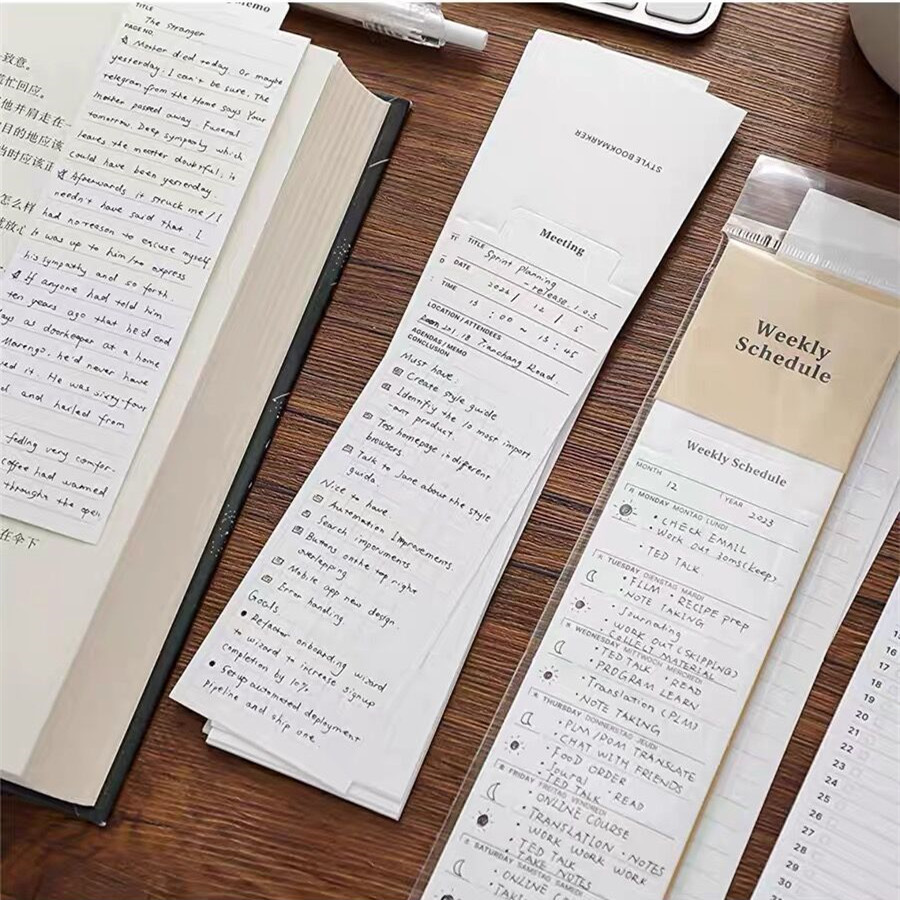 Memo
TITLE
The Stranger
PAGE NO.
Mother died today. Or maybe
yesterday. I can't be sure. The
telegram from the Home says Your
mother passed away. Funeral
tomorrow. Deep sympathy which
leaves the matter doubtful; it
could have been yesterday.
Afterwards it struck me/I
needn't have said that. I
had no reason to excuse myself
it was up to him/to express
his sympathy and so forth.
If anyone had told him
ten years ago that he'd end
days as doorkeeper at a home
Marengo, he'd never have
ed it. He was sixty-four
and hailed from
feeling very comfor-
coffee had warmed
through the open
致意。
忙回应。
他并肩走在一
目的地应该
当时应该正
怎么样
在伞下
STYLE BOOKMARKER
Meeting
TITLE Sprint planning
- release 1.0.3
DATE 2026 / 12 / 5
TIME 13 : 00 ~ 13 : 45
LOCATION / ATTENDEES
Room 201, 18 Tianchang Road.
AGENDAS / MEMO
CONCLUSION
Must have:
Create style guide
Identify the 10 most import
-ant product.
Test homepage in different
browsers.
Talk to Jane about the style
guide.
Nice to have.
Automation Improvements.
Search improvments
Buttons on the top right
overlapping
Mobile app new design.
Error handling
Goals
Refactor onboarding
to wizard to increase signup
completion by 10%.
Setup automated deployment
pipeline and ship one.
Weekly
Schedule
Weekly Schedule
MONTH 12 YEAR 2023
MONDAY MONTAG LUNDI
• CHECK EMAIL
• Work out 30ms(keep)
• TED TALK.
TUESDAY DIENSTAG MARDI
• FILM • RECIPE prep
• NOTE TAKING
• Journating
• WORK OUT (SKIPPING)
• COLLELT MATERIAL
WEDNESDAY MITTWOCH MERCREDI
• TED TALK • READ
• PROGRAM LEARN
• Translation (PLM)
• NOTE TAKING
THURSDAY DONNERSTAG JEUDI
• PLM/POM TRANSLATE
• CHAT WITH FRIENDS
• FOOD ORDER
• Joural • READ
• TED TALK
FRIDAY FREITAG VENDREDI
• ONLINE COURSE
• TRANSLATION • NOTES
• WORK WORK WORK
• TED TALK
• TAKE NOTES
SATURDAY SAMSTAG SAMEDI
• ONLINE
15
16
17
18
19
20
21
22
23
24
25
26
27
28
29
30